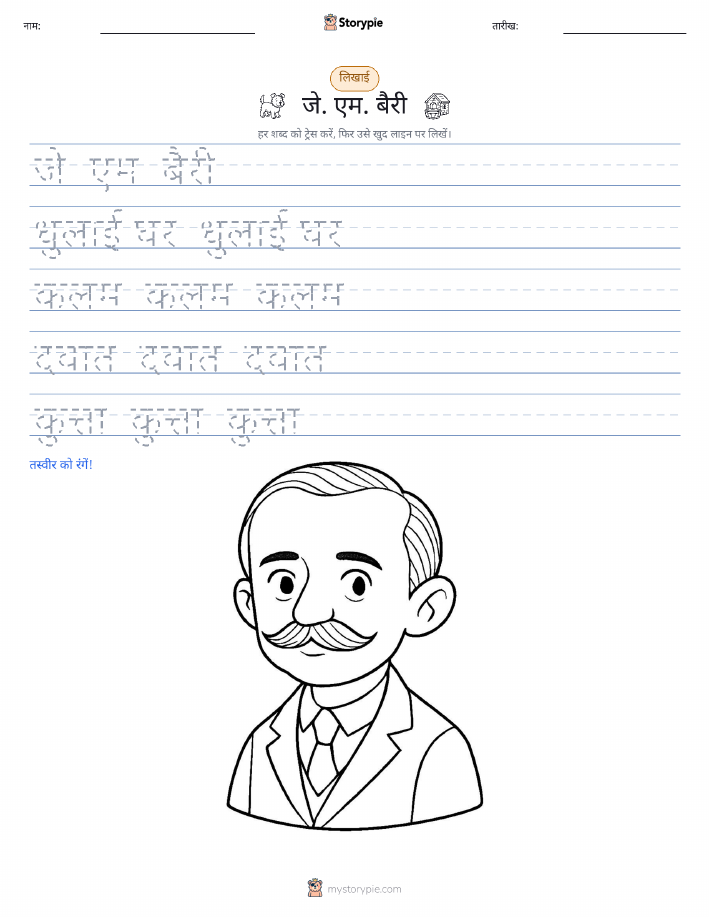 नाम:
Storypie
तारीख:
लिखाई
जे. एम. बैरी
हर शब्द को ट्रेस करें, फिर उसे खुद लाइन पर लिखें।
जे एम बैरी
धुलाई घर धुलाई घर
कलम कलम कलम
दवात दवात दवात
कुत्ता कुत्ता कुत्ता
तस्वीर को रंगें!
mystorypie.com